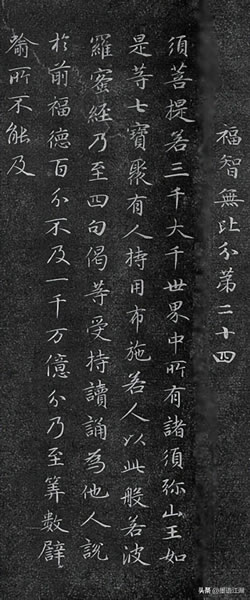 福智無比分第二十四
須菩提若三千大千世界中所有諸須弥山王如
是等七寶聚有人持用布施若人以此般若波
羅蜜經乃至四句偈等受持讀誦為他人說
於前福德百分不及一千万億分乃至筭數譬
喻所不能及
头条 @墨语江湖